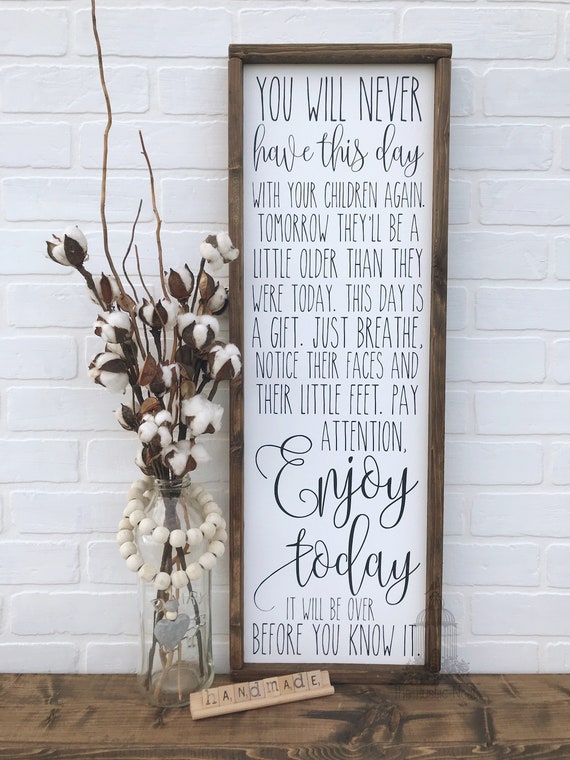 YOU WILL NEVER
have this day
WITH YOUR CHILDREN AGAIN.
TOMORROW THEY'LL BE A
LITTLE OLDER THAN THEY
WERE TODAY. THIS DAY IS
A GIFT. JUST BREATHE,
NOTICE THEIR FACES AND
THEIR LITTLE FEET. PAY
ATTENTION,
Enjoy
today
IT WILL BE OVER
BEFORE YOU KNOW IT.
handmade